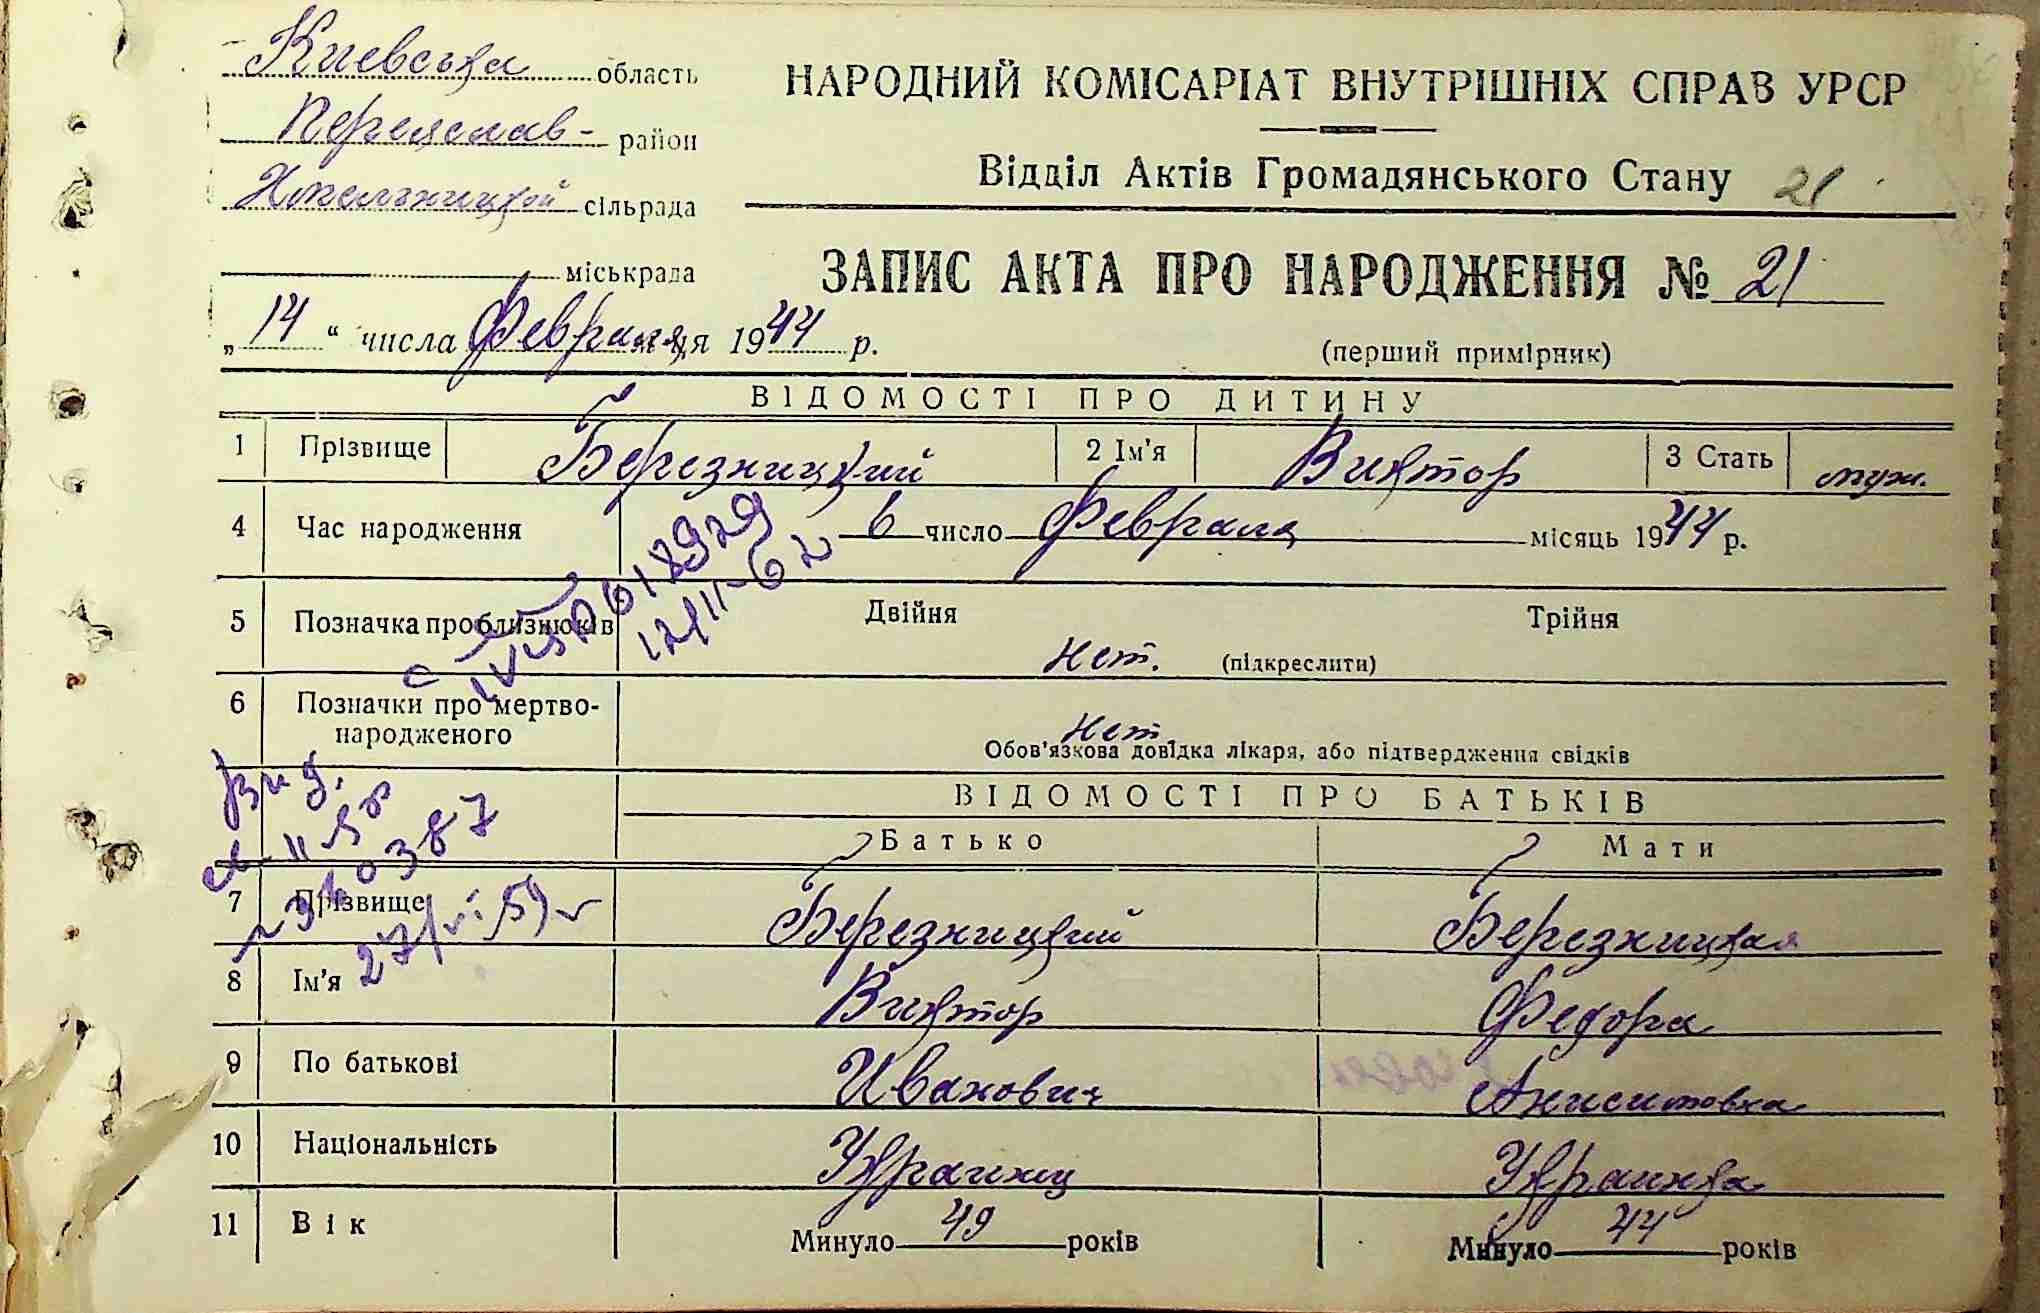 Киевська область
Переяслав- район
Хмельницкой сільрада
міськрада
НАРОДНИЙ КОМІСАРІАТ ВНУТРІШНІХ СПРАВ УРСР
Відділ Актів Громадянського Стану 21
ЗАПИС АКТА ПРО НАРОДЖЕННЯ № 21
„14“ числа Февраля ця 1944 р.
(перший примірник)
ВІДОМОСТІ ПРО ДИТИНУ
1 Прізвище Березницкий 2 Ім'я Виктор 3 Стать муж.
4 Час народження 6 число Февраля місяць 1944 р.
5 Позначка про близнюків Двійня Трійня
Нет. (підкреслити)
618929
12/11-62
6 Позначки про мертво-
народженого
Нет
Обов'язкова довідка лікаря, або підтвердження свідків
Вид.
ВІДОМОСТІ ПРО БАТЬКІВ
Батько Мати
7 Прізвище Березницкий Березницкая
8 Ім'я Виктор Федора
9 По батькові Иванович Анисимовна
10 Національність Украинец Украинка
11 Вік Минуло 49 років Минуло 44 років